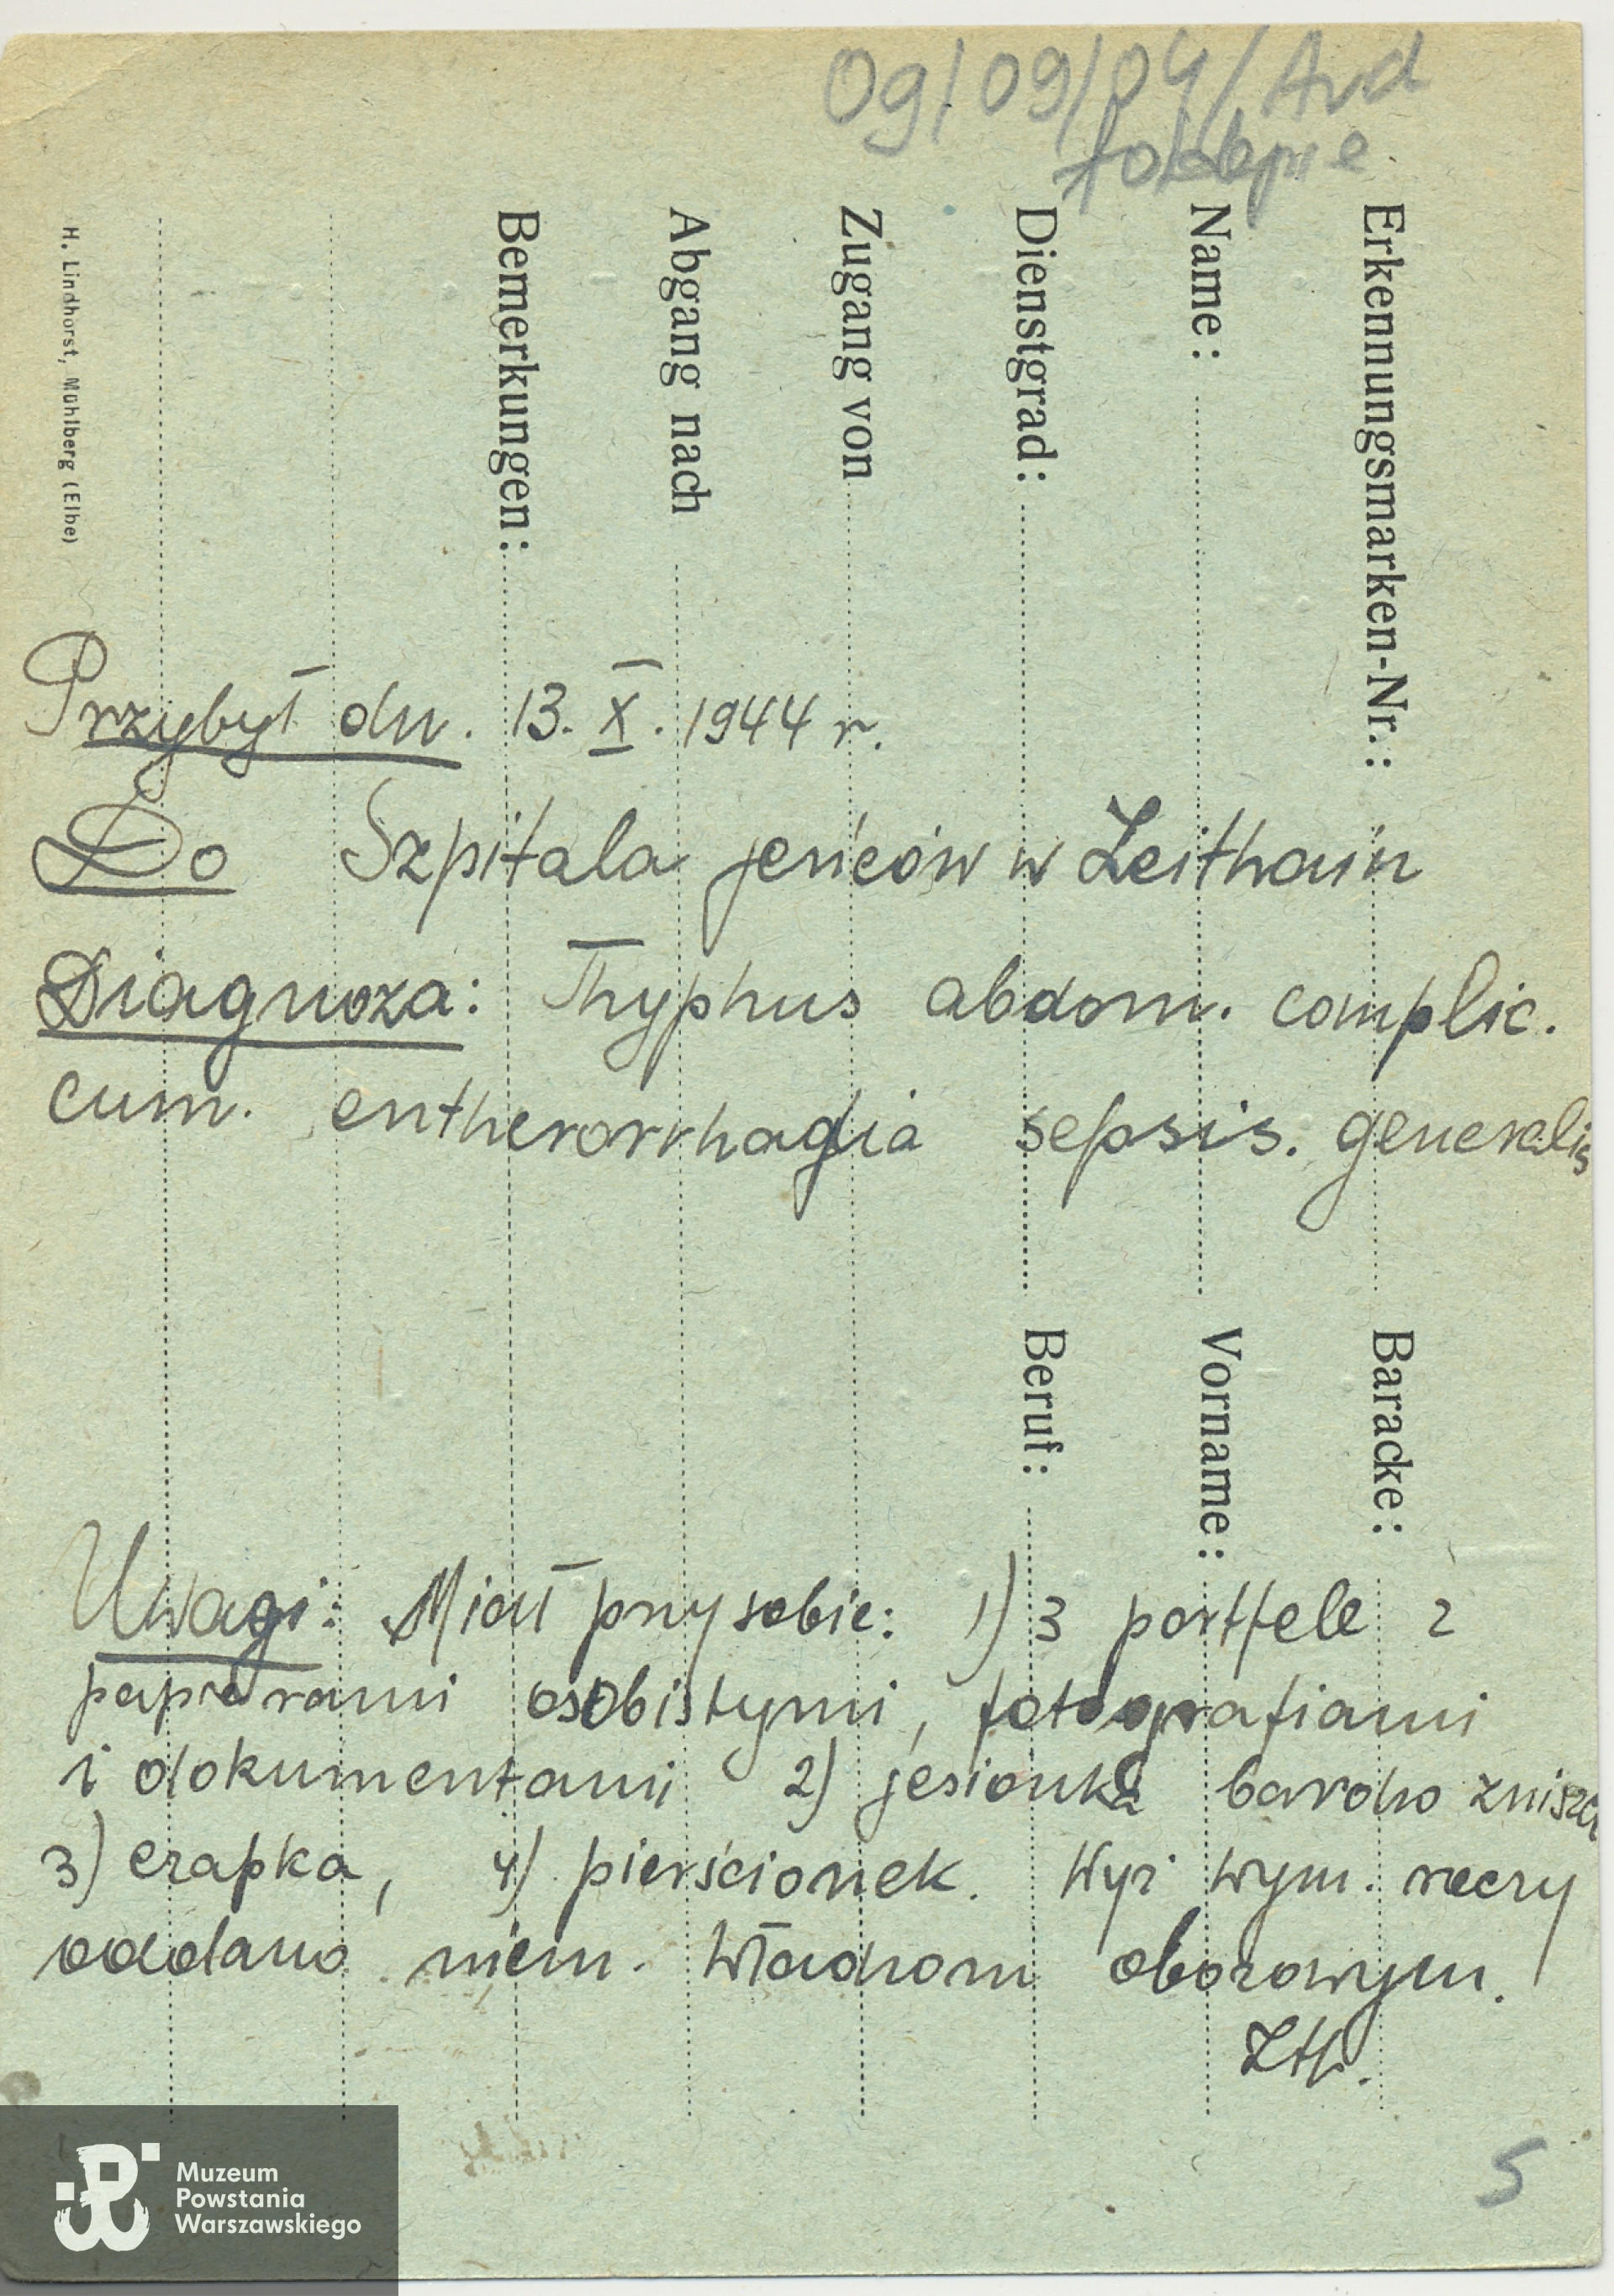 09/09/04/Avd
Erkennungsmarken-Nr.:
Baracke:
Name:
Vorname:
Dienstgrad:
Beruf:
Zugang von
Abgang nach
Bemerkungen:
H. Lindhorst, Mühlberg (Elbe)
Przybył dn. 13. X. 1944 r.
Do Szpitala jeńców w Zeithain
Diagnoza: Thyphus abdom. complic.
cum. entherorrhagia sepsis. generalis
Uwagi: Miał przy sobie: 1) 3 portfele z
papierami osobistymi, fotografiami
i dokumentami 2) jesionka bardzo zniszcz
3) czapka, 4) pierścionek. Wyż wym. rzeczy
oddano niem. władzom obozowym.
5
Muzeum
Powstania
Warszawskiego